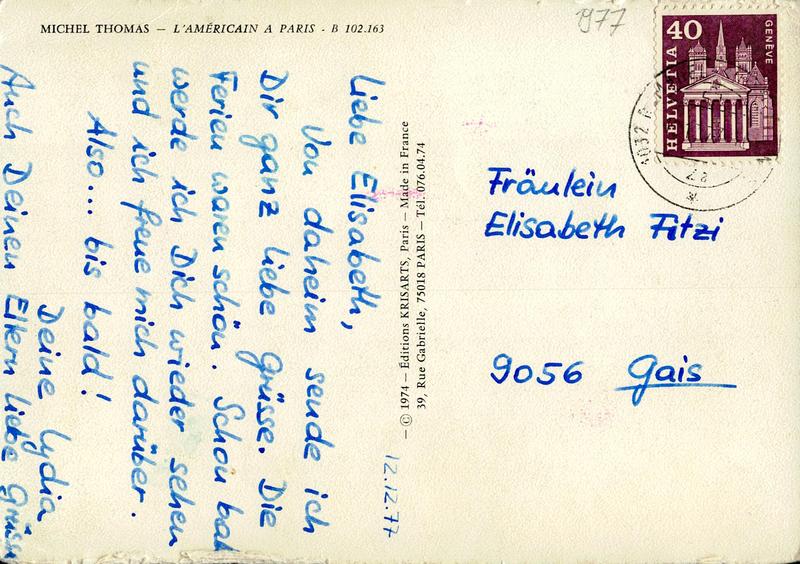 MICHEL THOMAS — L'AMÉRICAIN A PARIS - B 102.163
1977
HELVETIA 40
GENÈVE
12.12.77
Liebe Elisabeth,
Von daheim sende ich
Dir ganz liebe Grüsse. Die
Ferien waren schön. Schon bal
werde ich Dich wieder sehen
und ich freue mich darüber.
Also... bis bald!
Deine Lydia
Auch Deinen Eltern liebe Grüsse
— © 1974 — Éditions KRISARTS, Paris — Made in France
39, Rue Gabrielle, 75018 PARIS — Tél. 076.04.74
Fräulein
Elisabeth Fitzi
9056 Gais